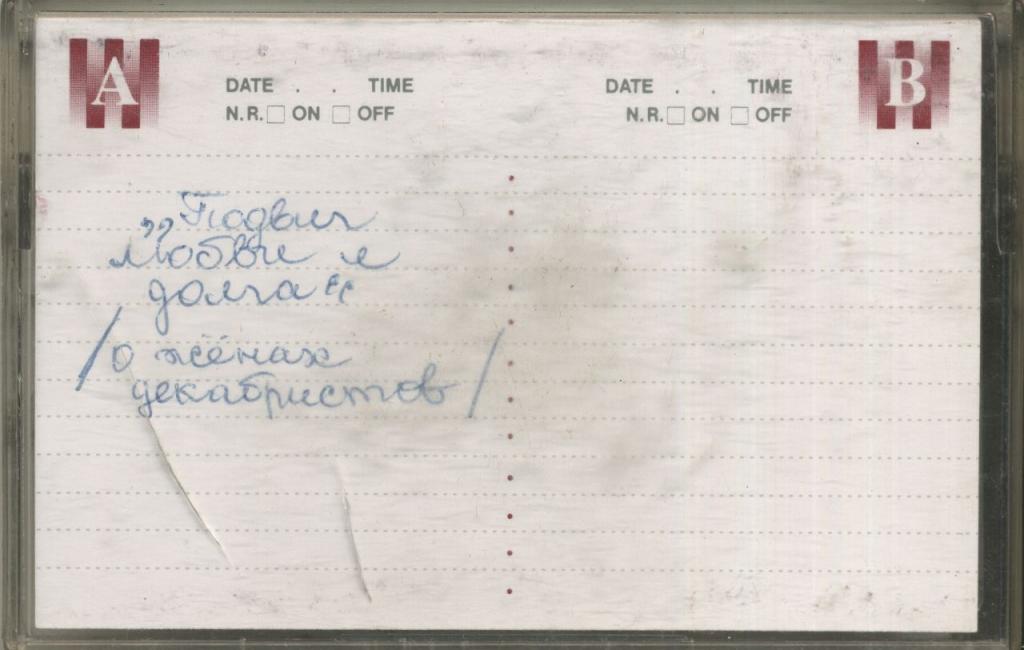 A
DATE . . TIME
N.R. ON OFF
DATE . . TIME
N.R. ON OFF
B
„Подвиг
любви и
долга“
/о жёнах
декабристов/